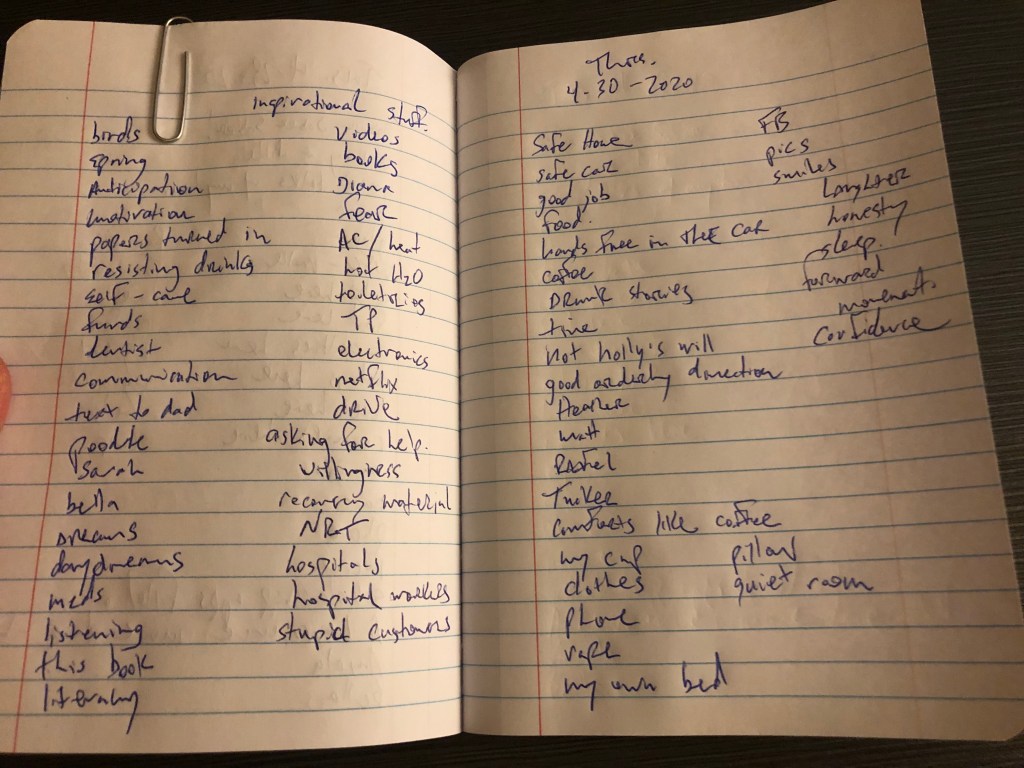 inspirational stuff.
birds
spring
Anticipation
motivation
papers turned in
resisting drinks
self-care
funds
dentist
communication
text to dad
Poodle
Sarah
bella
dreams
daydreams
meds
listening
this book
literacy
videos
books
Diana
fear
AC/heat
hot H2O
toiletries
TP
electronics
netflix
drive
asking for help.
willingness
recovery material
NRT
hospitals
hospital workers
stupid customers
Thurs.
4-30-2020
Safe Home
safe car
good job
food.
hands free in the car
coffee
Drunk stories
time
not holly's will
good orderly direction
Heather
Matt
Rachel
comforts like coffee
my cup
clothes
phone
vape
my own bed
pillow
quiet room
FB
pics
smiles
laughter
honesty
sleep.
forward
movement.
Confidence